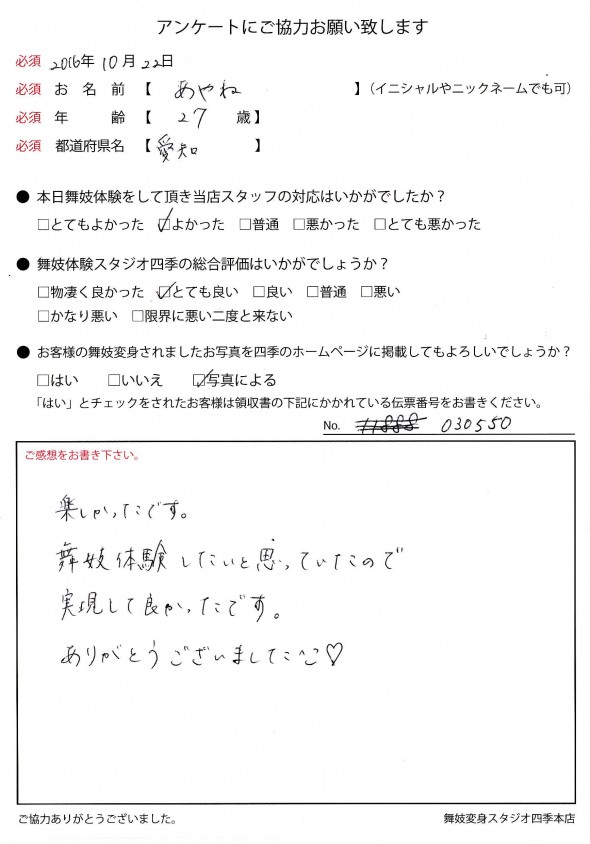 アンケートにご協力お願い致します
必須 2016年 10月 22日
必須 お名前【 あやね 】（イニシャルやニックネームでも可）
必須 年齢【 27 歳】
必須 都道府県名【 愛知 】
● 本日舞妓体験をして頂き当店スタッフの対応はいかがでしたか？
□とてもよかった ☑よかった □普通 □悪かった □とても悪かった
● 舞妓体験スタジオ四季の総合評価はいかがでしょうか？
□物凄く良かった ☑とても良い □良い □普通 □悪い
□かなり悪い □限界に悪い二度と来ない
● お客様の舞妓変身されましたお写真を四季のホームページに掲載してもよろしいでしょうか？
□はい □いいえ ☑写真による
「はい」とチェックをされたお客様は領収書の下記にかかれている伝票番号をお書きください。
No. 11888 030550
ご感想をお書き下さい。
楽しかったです。
舞妓体験したいと思っていたので
実現して良かったです。
ありがとうございました♡
ご協力ありがとうございました。
舞妓変身スタジオ四季本店